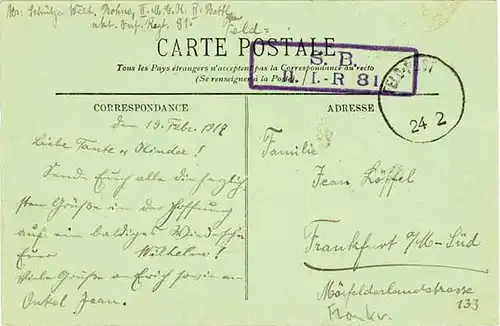 Abs: Schütze Wilh. Bohne, II. M.G.K. II. Batl.
akt. Inf. Reg. 81.
Feld=
CARTE POSTALE
Tous les Pays étrangers n'acceptent pas la Correspondance au recto
(Se renseigner à la Poste)
S. B.
II./I.-R 81
24 2
CORRESPONDANCE
den 19. Febr. 1917
Liebe Tante & Kinder!
Sende Euch alle die herzlich-
sten Grüße in der Hoffnung
auf ein baldiges Wiedersehn
Euer Wilhelm!
Viele Grüße an Erich sowie an
Onkel Jean.
ADRESSE
Familie
Jean Löffel
Frankfurt a/M-Süd
Mörfelderlandstrasse
133